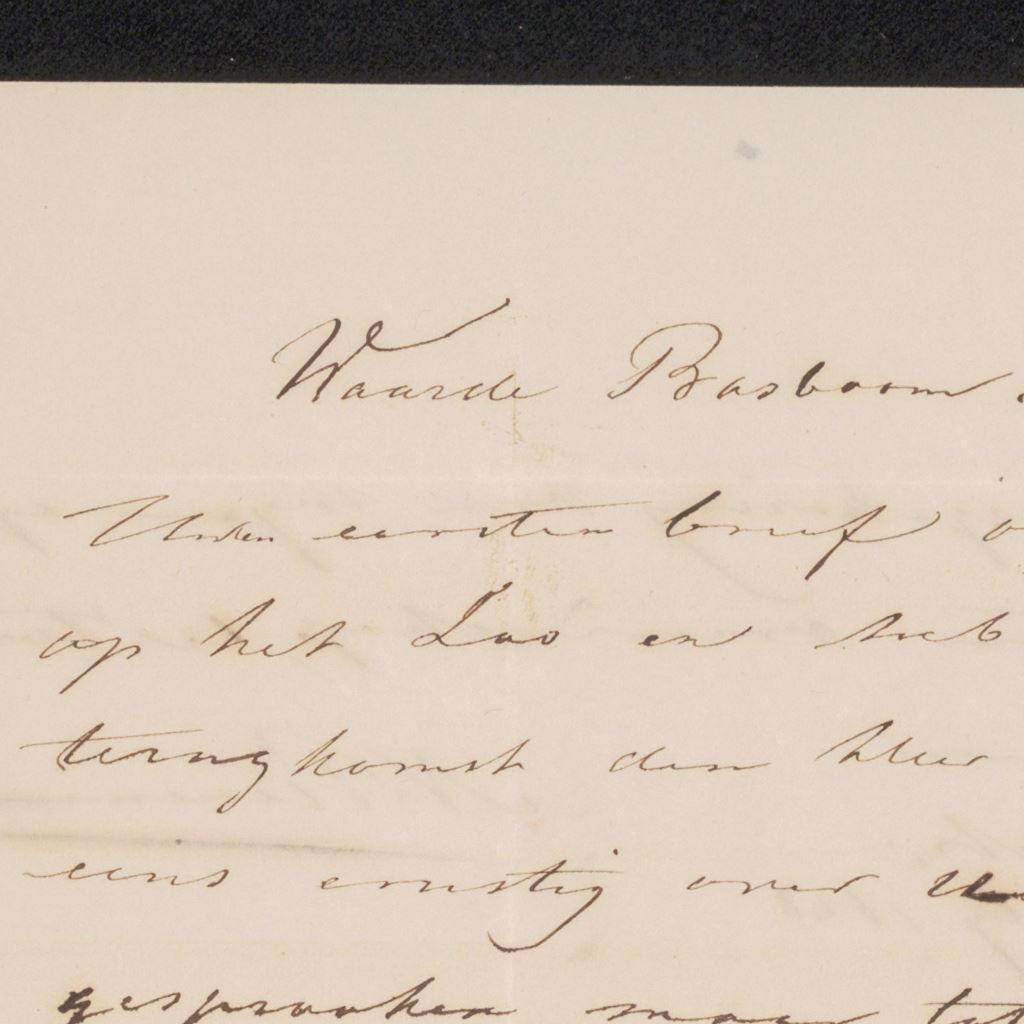 Waarde Basboom
Uwen eersten brief o
op het Loo en heb
terugkomst den Heer
eens ernstig over U
gesprooken maar